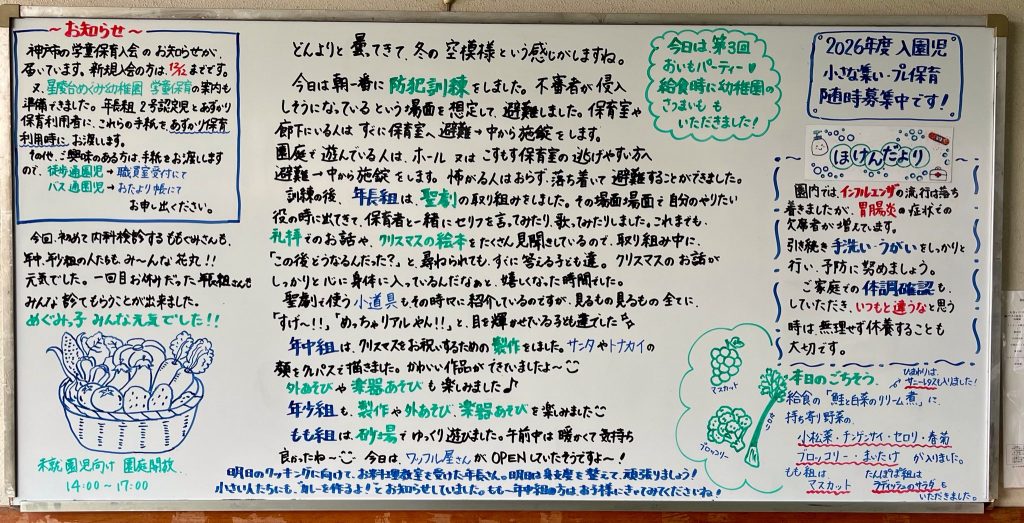 ～お知らせ～
神戸市の学童保育入会のお知らせが、
届いています。新規入会の方は、12/12までです。
又、星陵台めぐみ幼稚園 学童保育の案内も
準備できました。年長組 2号認定児とあずかり
保育利用者に、これらの手紙を、あずかり保育
利用時に、お渡します。
その他、ご興味のある方は、手紙をお渡しします
ので、徒歩通園児→職員室受付にて
バス通園児→おたより帳にて
お申し出ください。
今回、初めて内科検診するももぐみさんも、
年中、年少組の人たちも、み～んな花丸！！
元気でした。一回目お休みだった年長組さんも
みんな診てもらうことが出来ました。
めぐみっ子みんな元気でした！！
未就園児向け 園庭開放
14:00～17:00
どんよりと曇ってきて、冬の空模様という感じがしますね。
今日は朝一番に防犯訓練をしました。不審者が侵入
しそうになっているという場面を想定して、避難しました。保育室や
廊下にいる人は、すぐに保育室へ避難→中から施錠をします。
園庭で遊んでいる人は、ホール又はこすもす保育室の逃げやすい方へ
避難→中から施錠をします。怖がる人はおらず、落ち着いて避難することができました。
訓練の後、年長組は、聖劇の取り組みをしました。その場面場面で自分のやりたい
役の時に出てきて、保育者と一緒にセリフを言ってみたり、歌ってみたりしました。これまでも、
礼拝でのお話や、クリスマスの絵本をたくさん見聞きしているので、取り組み中に、
「この後どうなるんだった？」と、尋ねられても、すぐに答える子ども達。クリスマスのお話が
しっかりと心に身体に入っているんだなぁと、嬉しくなった時間でした。
聖劇で使う小道具もその時々に紹介しているのですが、見るもの見るもの全てに、
「すげ～！！」「めっちゃリアルやん！！」と、目を輝かせている子ども達でした
年中組は、クリスマスをお祝いするための製作をしました。サンタやトナカイの
顔をクレパスで描きました。かわいい作品ができていましたよ～
外あそびや楽器あそびも楽しみました♪
年少組も、製作や外あそび、楽器あそびを楽しみました
もも組は、砂場でゆっくり遊びました。午前中は暖かくて気持ち
良かったね～ 今日は、ワッフル屋さんがOPENしていたそうですよ～！
明日のクッキングに向けて、お料理教室を受けた年長さん。明日は身支度を整えて、頑張りましょう！
小さい人たちにも、「カレーを作るよ！」とお知らせしていました。もも～年中組の方は、お子様にきいてみてくださいね！
今日は、第3回
おいもパーティー♥
給食時に幼稚園の
さつまいもも
いただきました！
マスカット
ブロッコリー
セロリ
2026年度 入園児
小さな集い・プレ保育
随時募集中です！
ほけんだより
園内では、インフルエンザの流行は落ち
着きましたが、胃腸炎の症状での
欠席者が増えています。
引き続き手洗い・うがいをしっかりと
行い、予防に努めましょう。
ご家庭での体調確認も
していただき、いつもと違うなと思う
時は、無理せず休養することも
大切です。
本日のごちそう、
ひまわりは、
サニーレタスも入りました！
給食の「鮭と白菜のクリーム煮」に、
持ち寄り野菜の、
小松菜・チンゲンサイ・セロリ・春菊
ブロッコリー・まいたけ が入りました。
もも組は
マスカット
たんぽぽ組は
ラディッシュのサラダも
いただきました。